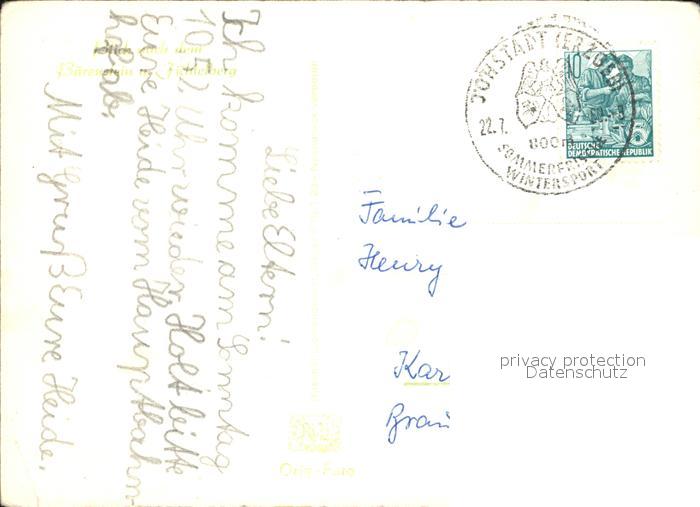 Blick nach dem
Bärenstein u. Fichtelberg
Liebe Eltern!
Ich komme am Sonntag
10⁵² Uhr wieder. Holt bitte
Eure Heide vom Hauptbahn-
hof ab.
Mit Gruß Eure Heide.
JÖHSTADT (ERZGEB)
22.7.
800m
SOMMERFRISCHE
WINTERSPORT
10
DEUTSCHE
DEMOKRATISCHE REPUBLIK
Familie
Henry
Kar
Brau
privacy protection
Datenschutz
Orig.-Foto